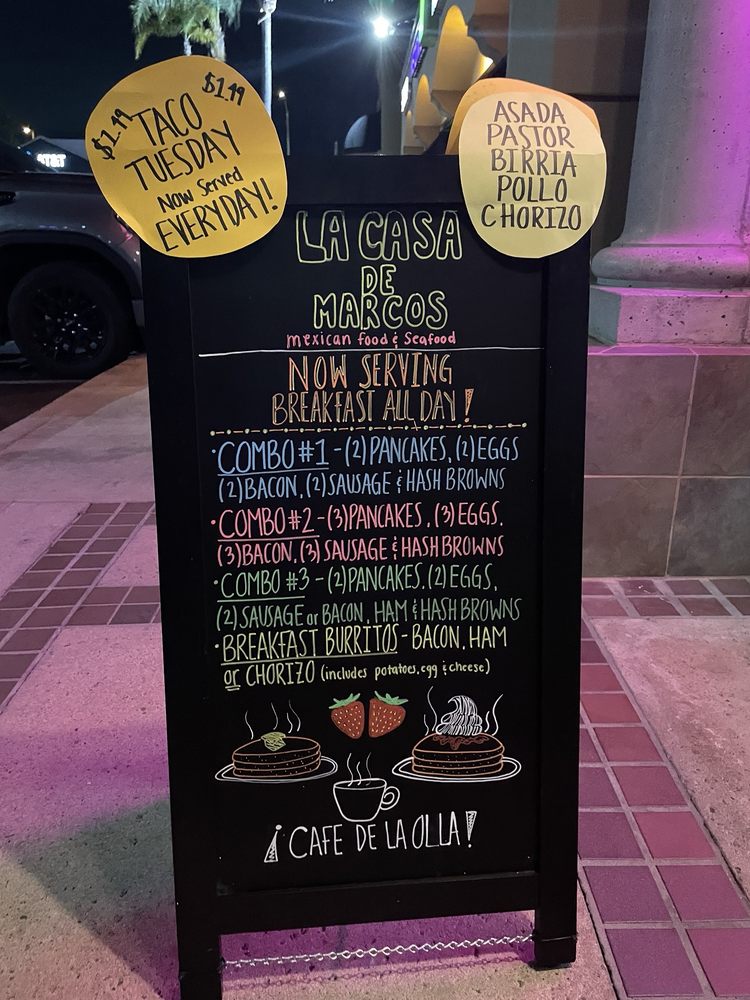 $1.49 $1.49
TACO
TUESDAY
NOW Served
EVERYDAY!
ASADA
PASTOR
BIRRIA
POLLO
CHORIZO
LA CASA
DE
MARCOS
mexican food & Seafood
NOW SERVING
BREAKFAST ALL DAY!
·COMBO #1 - (2) PANCAKES, (2) EGGS
(2) BACON, (2) SAUSAGE & HASH BROWNS
·COMBO #2 - (3) PANCAKES, (3) EGGS,
(3) BACON, (3) SAUSAGE & HASH BROWNS
·COMBO #3 - (2) PANCAKES, (2) EGGS,
(2) SAUSAGE or BACON, HAM & HASH BROWNS
·BREAKFAST BURRITOS - BACON, HAM
or CHORIZO (includes potatoes, egg & cheese)
¡CAFE DE LA OLLA!